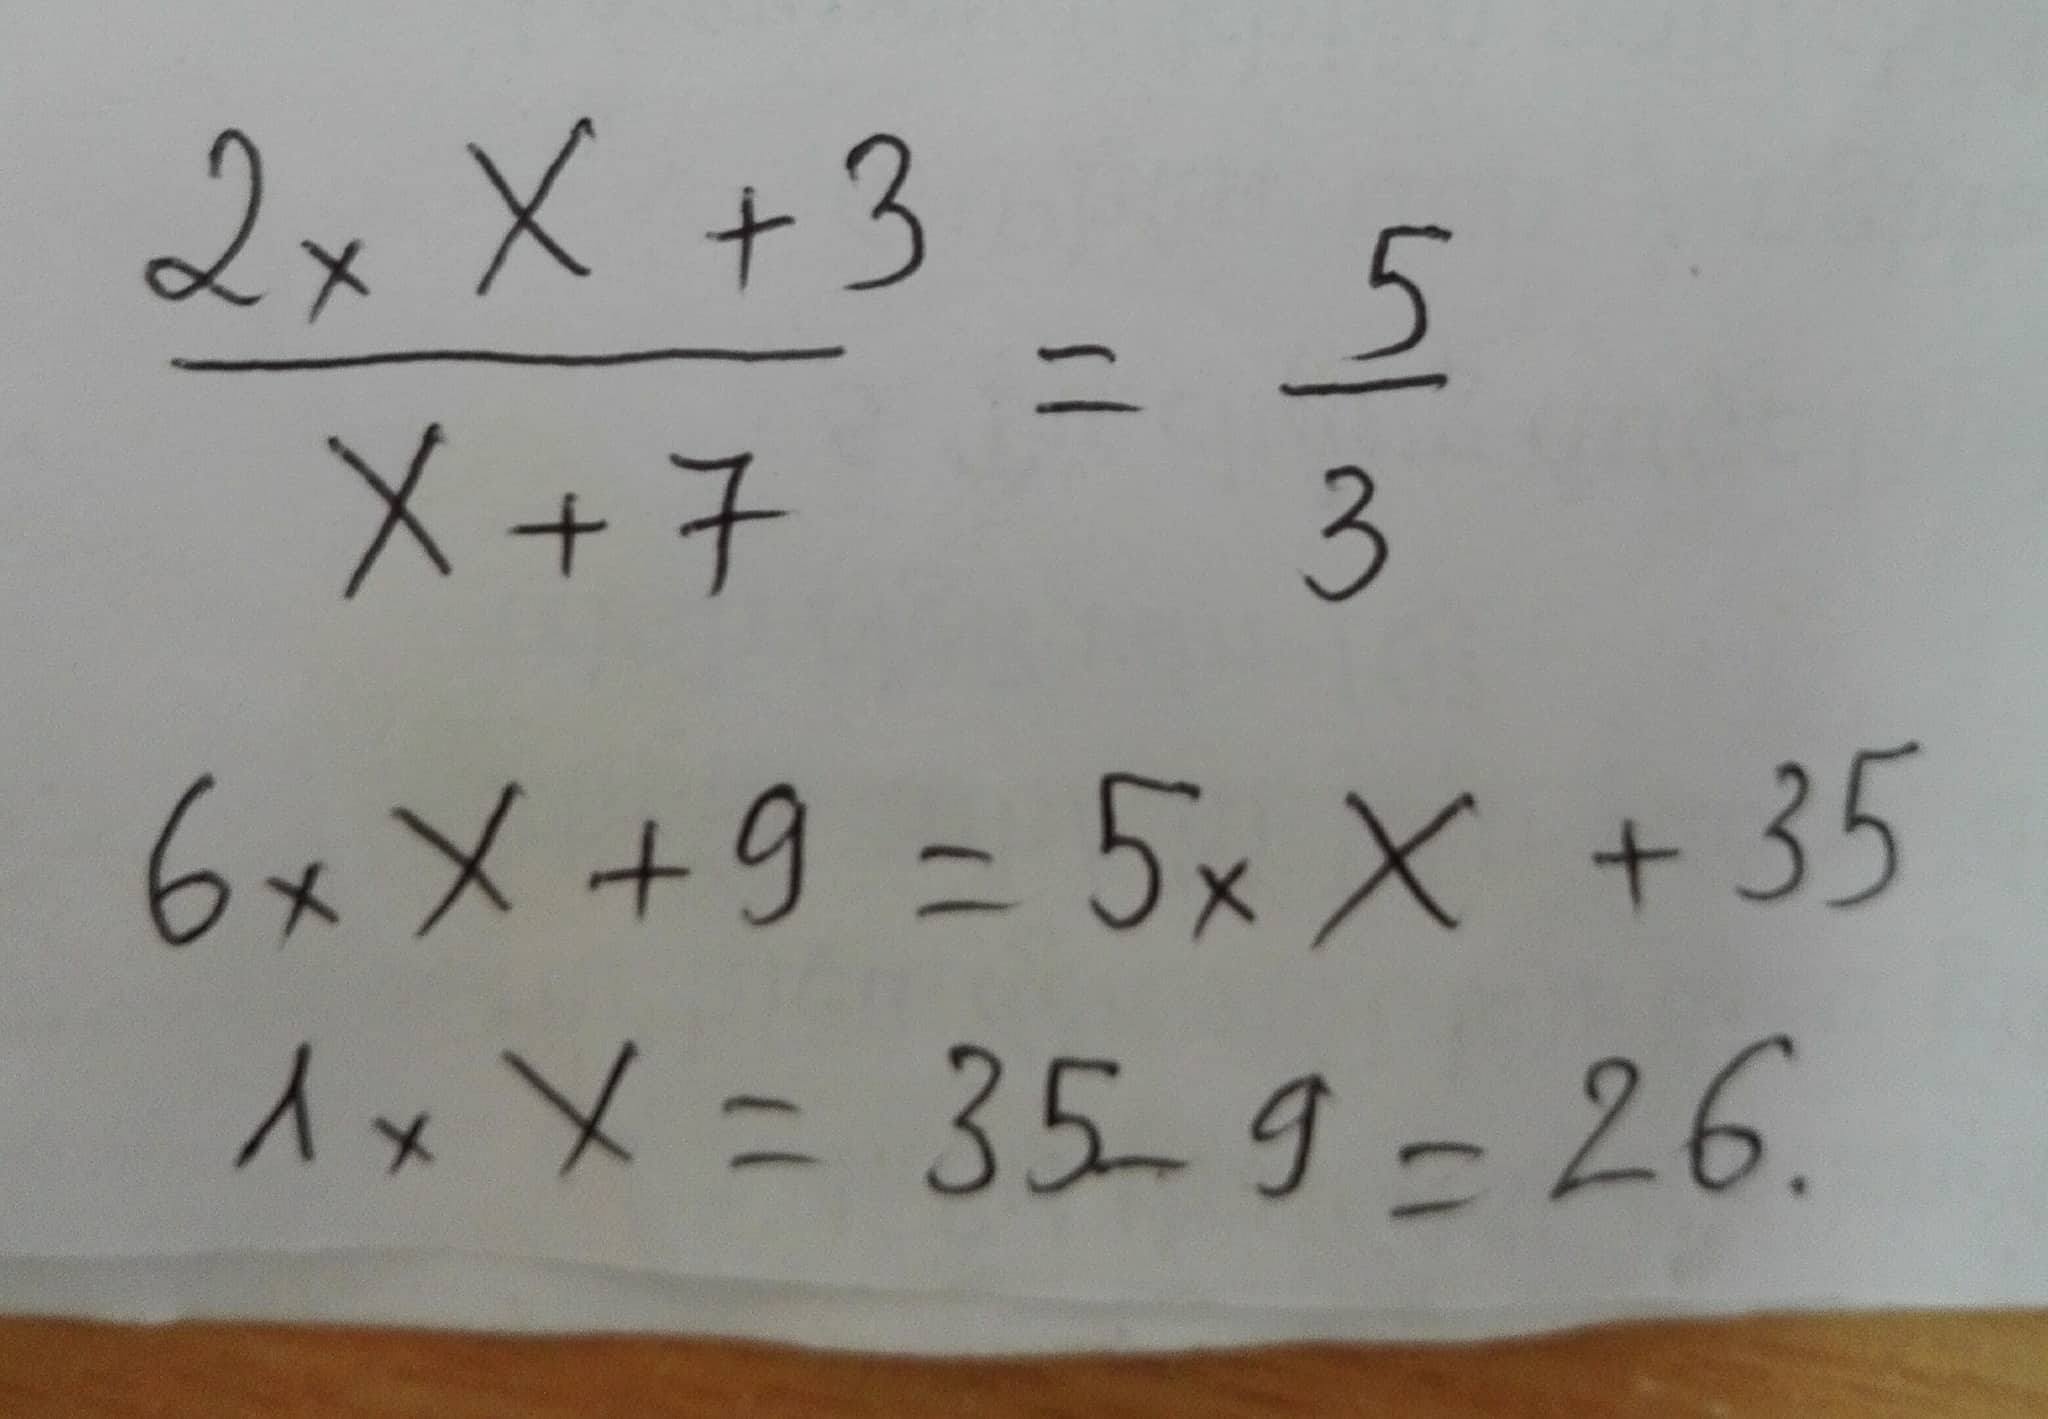 2 x X + 3
X + 7
= 5
3
6 x X + 9 = 5 x X + 35
1 x X = 35 - 9 = 26.